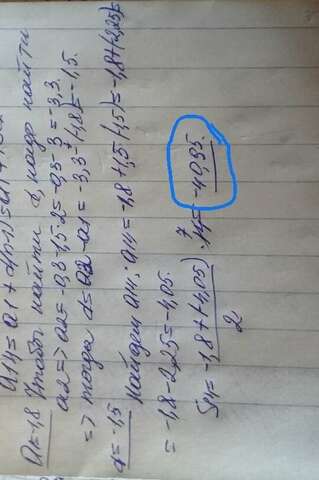 a14 = a1 + d(n-1) = a1 +
a1 = -1,8 Чтобы найти d, надо найти
a2 => a2 = -0,3 - 1,5·2 = -0,3 - 3 = -3,3.
=> тогда d = a2 - a1 = -3,3 - (-1,8) = -1,5.
d = -1,5 Найдем a14: a14 = -1,8 + 1,5·(-1,5) = -1,8 + (-2,25) =
= -1,8 - 2,25 = -4,05.
S14 = -1,8 + (-4,05) / 2 · 14 = -40,95.